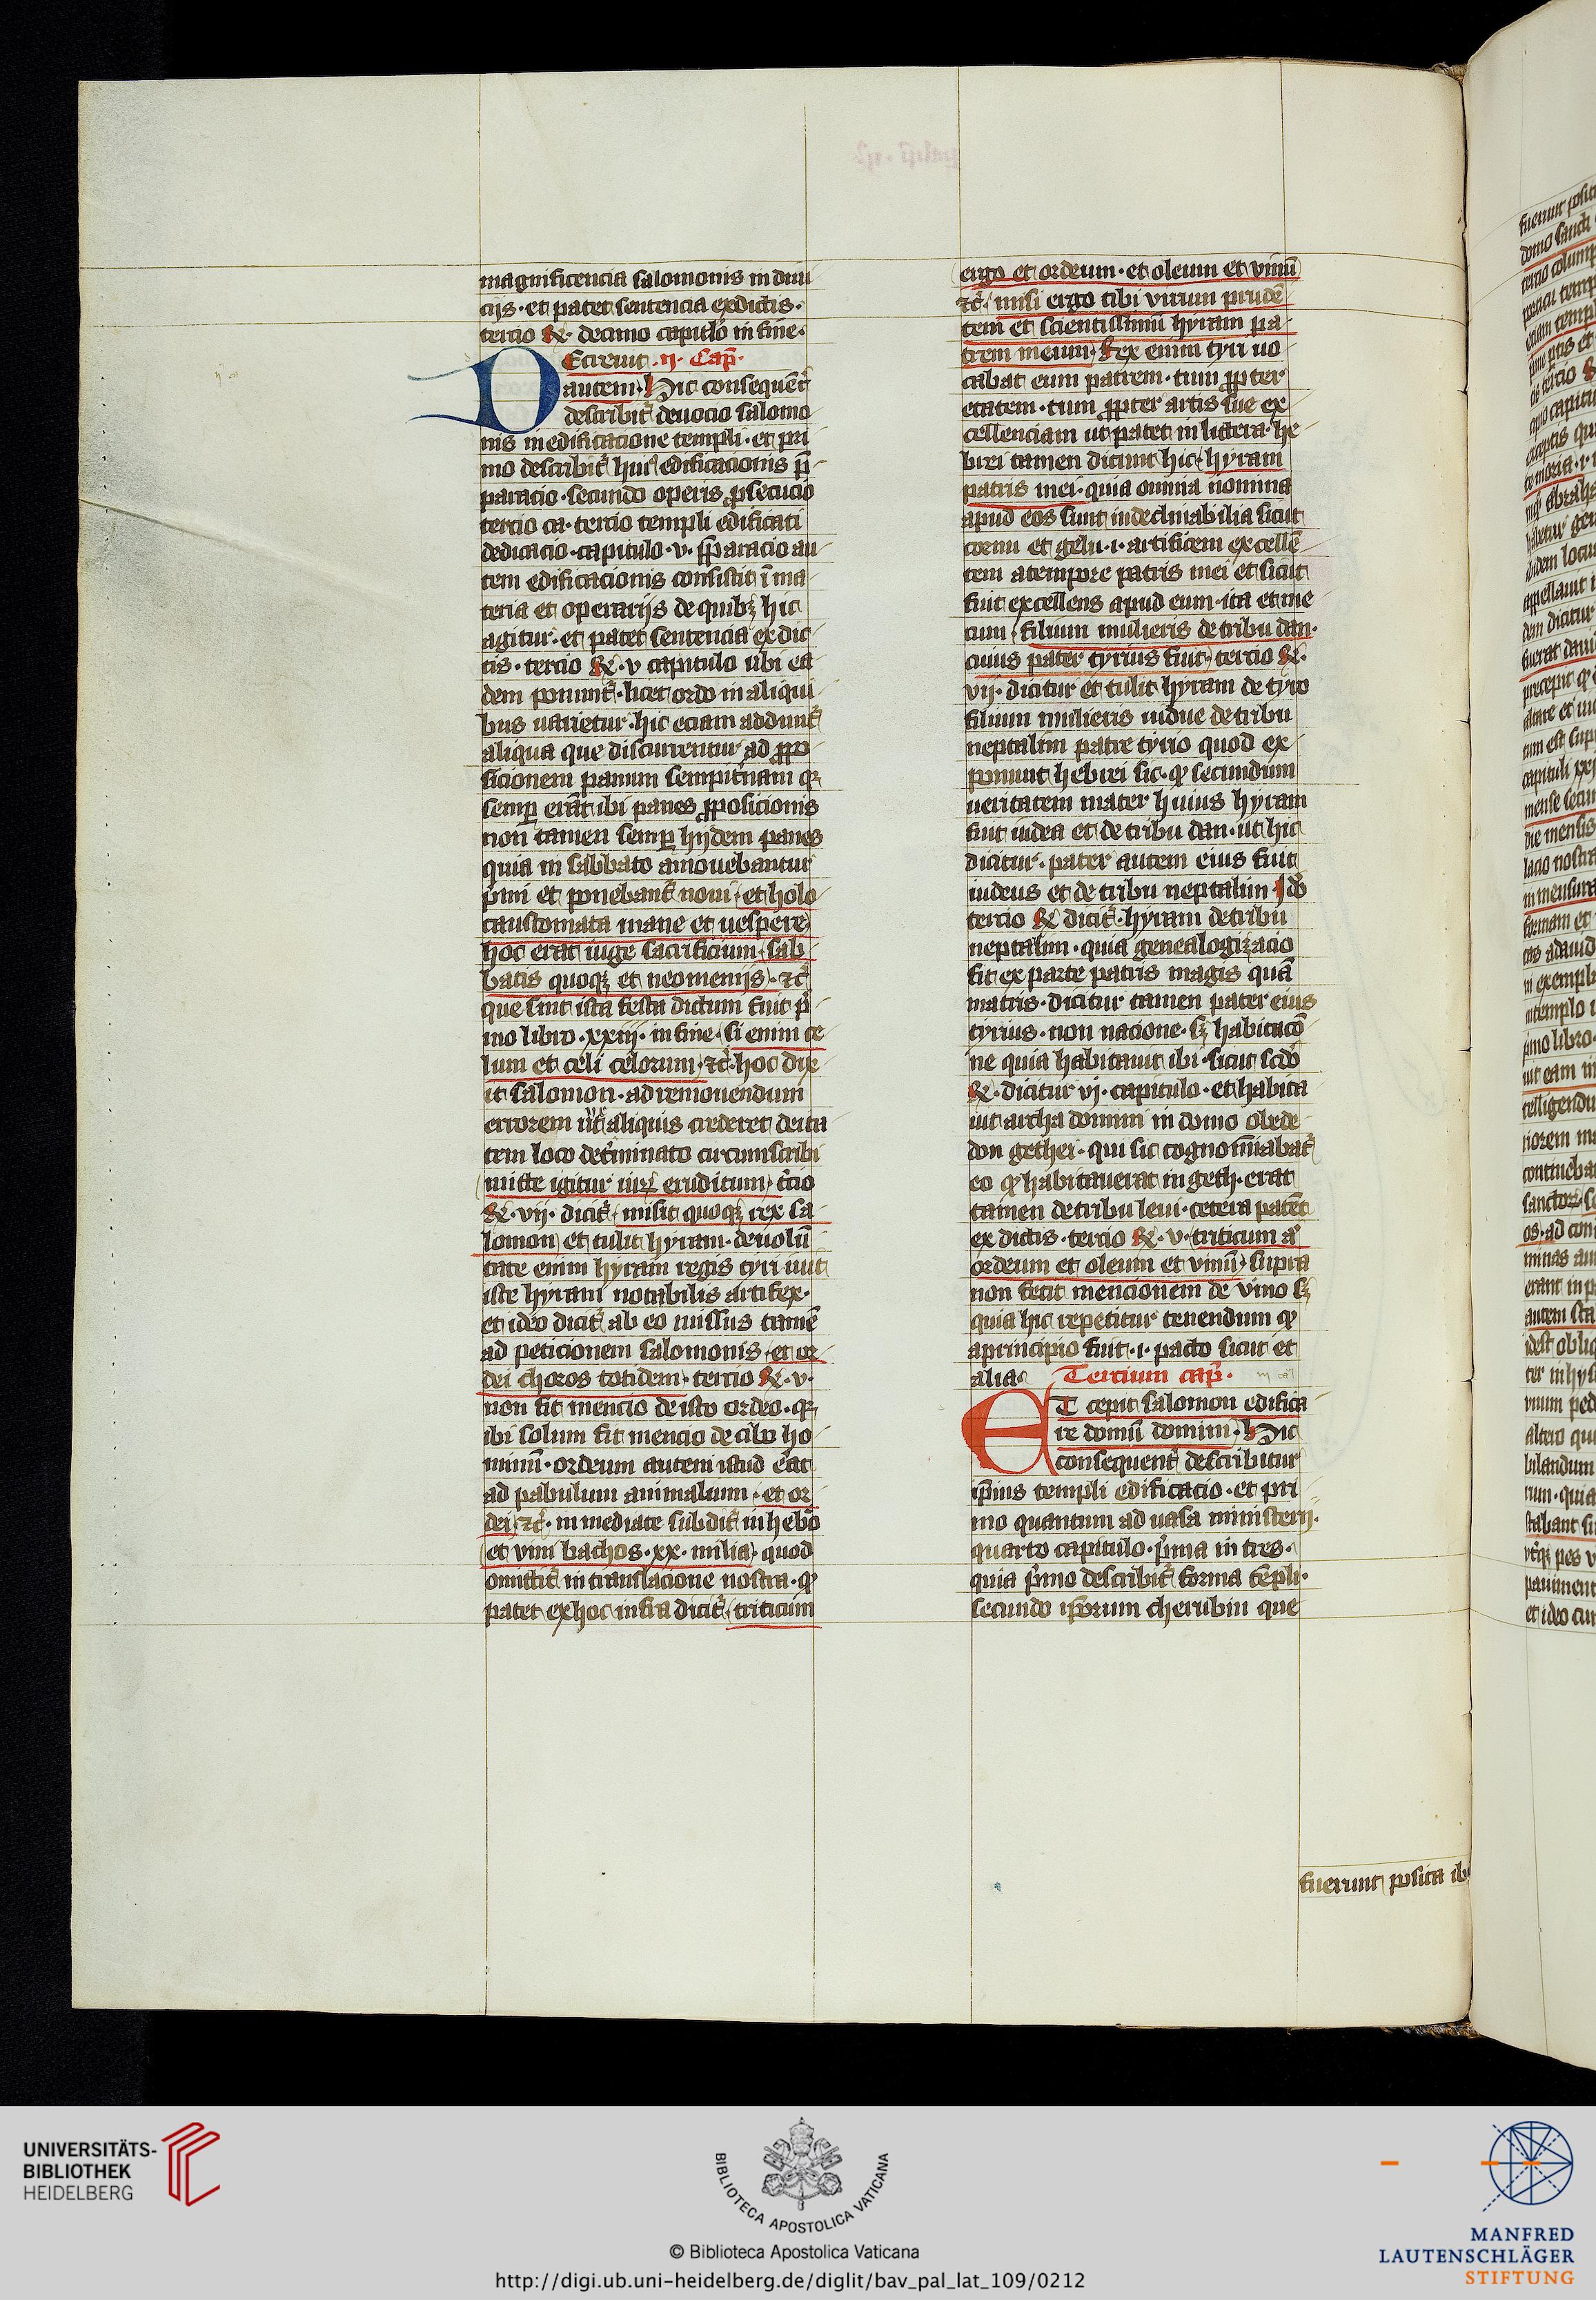 magnificencia salomonis in diui
cijs · et patet sentencia ex dictis ·
tercio R̃ · decimo capitulo in fine ·
DEcreuit · ij · Cap̃ ·
autem · Hic consequen̄t
describit̃ deuocio salomo
nis in edificacione templi · et pri
mo describit̃ huiꝰ edificacionis p̃
paracio · secundo operis ꝓsecucio
tercio ca · tercio templi edificati
dedicacio · capitulo · v · p̃paracio au
tem edificacionis consistit ī ma
teria et operarijs de quibꝫ hic
agitur · et patet sentencia ex dic
tis · tercio R̃ · v capitulo ubi ea
dem ponunt̃ · licet ordo in aliqui
bus uarietur · hic eciam addunt̃
aliqua que discurrentur ad ꝓpo
sicionem panum sempit̃nam qꝛ
semꝑ erāt ibi panes ꝓposicionis
non tamen semꝑ hijdem panes
quia in sabbato amouebantur
p̃mi et ponebant̃ noui · et holo
caustomata mane et uespere
hoc erat iuge sacrificium · sab
batis quoqꝫ et neomenijs · ⁊c̃
que sint ista festa dictum fuit p̃
mo libro · xxiij · in fine · Si enim ce
lum et celi celorum · ⁊c̃ · hoc dix
it salomon · ad remouendum
errorem aliquis crederet deita
tem loco det̃minato circumscribi
mitte igitur uiꝝ eruditum · t̃cio
R̃ · vij · dicit̃ · misit quoqꝫ rex sa
lomon et tulit hyram · de uolū
tate enim hyram regis tyri iuit
iste hyram notabilis artifex ·
et ideo dicit̃ ab eo missus tamē
ad peticionem salomonis · et or
dei choros totidem · tercio R̃ · v ·
non fit mencio de isto ordeo · qꝛ
ibi solum fit mencio de cibo ho
minū · ordeum autem istud erat
ad pabulum animalium · et or
dei · ⁊c̃ · in mediate subdit̃ in hebr̃o
et vini bachos · xx · milia · quod
omittit̃ in translacione nostra · ꝙ
patet ex hoc infra dicit̃ · triticum
ergo et ordeum · et oleum et vinū
⁊c̃ · misi ergo tibi virum prudē
tem et scientissimū hyram pa
trem meum · Rex enim tyri uo
cabat eum patrem · tum ꝓpter
etatem · tum ꝓpter artis sue ex
cellenciam ut patet in littera · he
brei tamen dicunt hic · hyram
patris mei · quia omnia nomina
apud eos sunt indeclinabilia sicut
cornu et gelu · i · artificem excellē
tem a tempore patris mei et sicut
fuit excellens apud eum · ita et me
cum · filium mulieris de tribu dan ·
cuius pater tyrius fuit · tercio R̃ ·
vij · dicitur et tulit hyram de tyro
filium mulieris uidue de tribu
neptalim patre tyrio quod ex
ponunt hebrei sic · ꝙ secundum
ueritatem mater huius hyram
fuit iudea et de tribu dan · ut hic
dicitur · pater autem eius fuit
iudeus et de tribu neptalim Ido
tercio R̃ dicit̃ · hyram de tribu
neptalim · quia genealogizacio
fit ex parte patris magis quā
matris · dicitur tamen pater eius
tyrius · non nacione · sꝫ habitacō
ne quia habitauit ibi · sicut scdo
R̃ · dicitur vj · capitulo · et habita
uit archa domini in domo obede
don gethei · qui sic cognomīabat̃
eo ꝙ habitauerat in geth · erat
tamen de tribu leui · cetera patēt
ex dictis · tercio R̃ · v · triticum a
ordeum et oleum et vinū · supra
non fecit mencionem de vino sꝫ
quia hic repetitur tenendum ꝙ
a principio fuit · i · pacto sicut et
alia · Tercium cap̃ ·
ET cepit salomon edifica
re domū domini · Hic
consequent̃ describitur
ip̃ius templi edificacio · et pri
mo quantum ad uasa ministerij ·
quarto capitulo · p̃ma in tres ·
quia p̃mo describit̃ forma tēpli ·
secundo ip̃orum cherubin que
fuerunt posita ib
UNIVERSITÄTS-
BIBLIOTHEK
HEIDELBERG
BIBLIOTECA APOSTOLICA VATICANA
© Biblioteca Apostolica Vaticana
http://digi.ub.uni-heidelberg.de/diglit/bav_pal_lat_109/0212
MANFRED
LAUTENSCHLÄGER
STIFTUNG